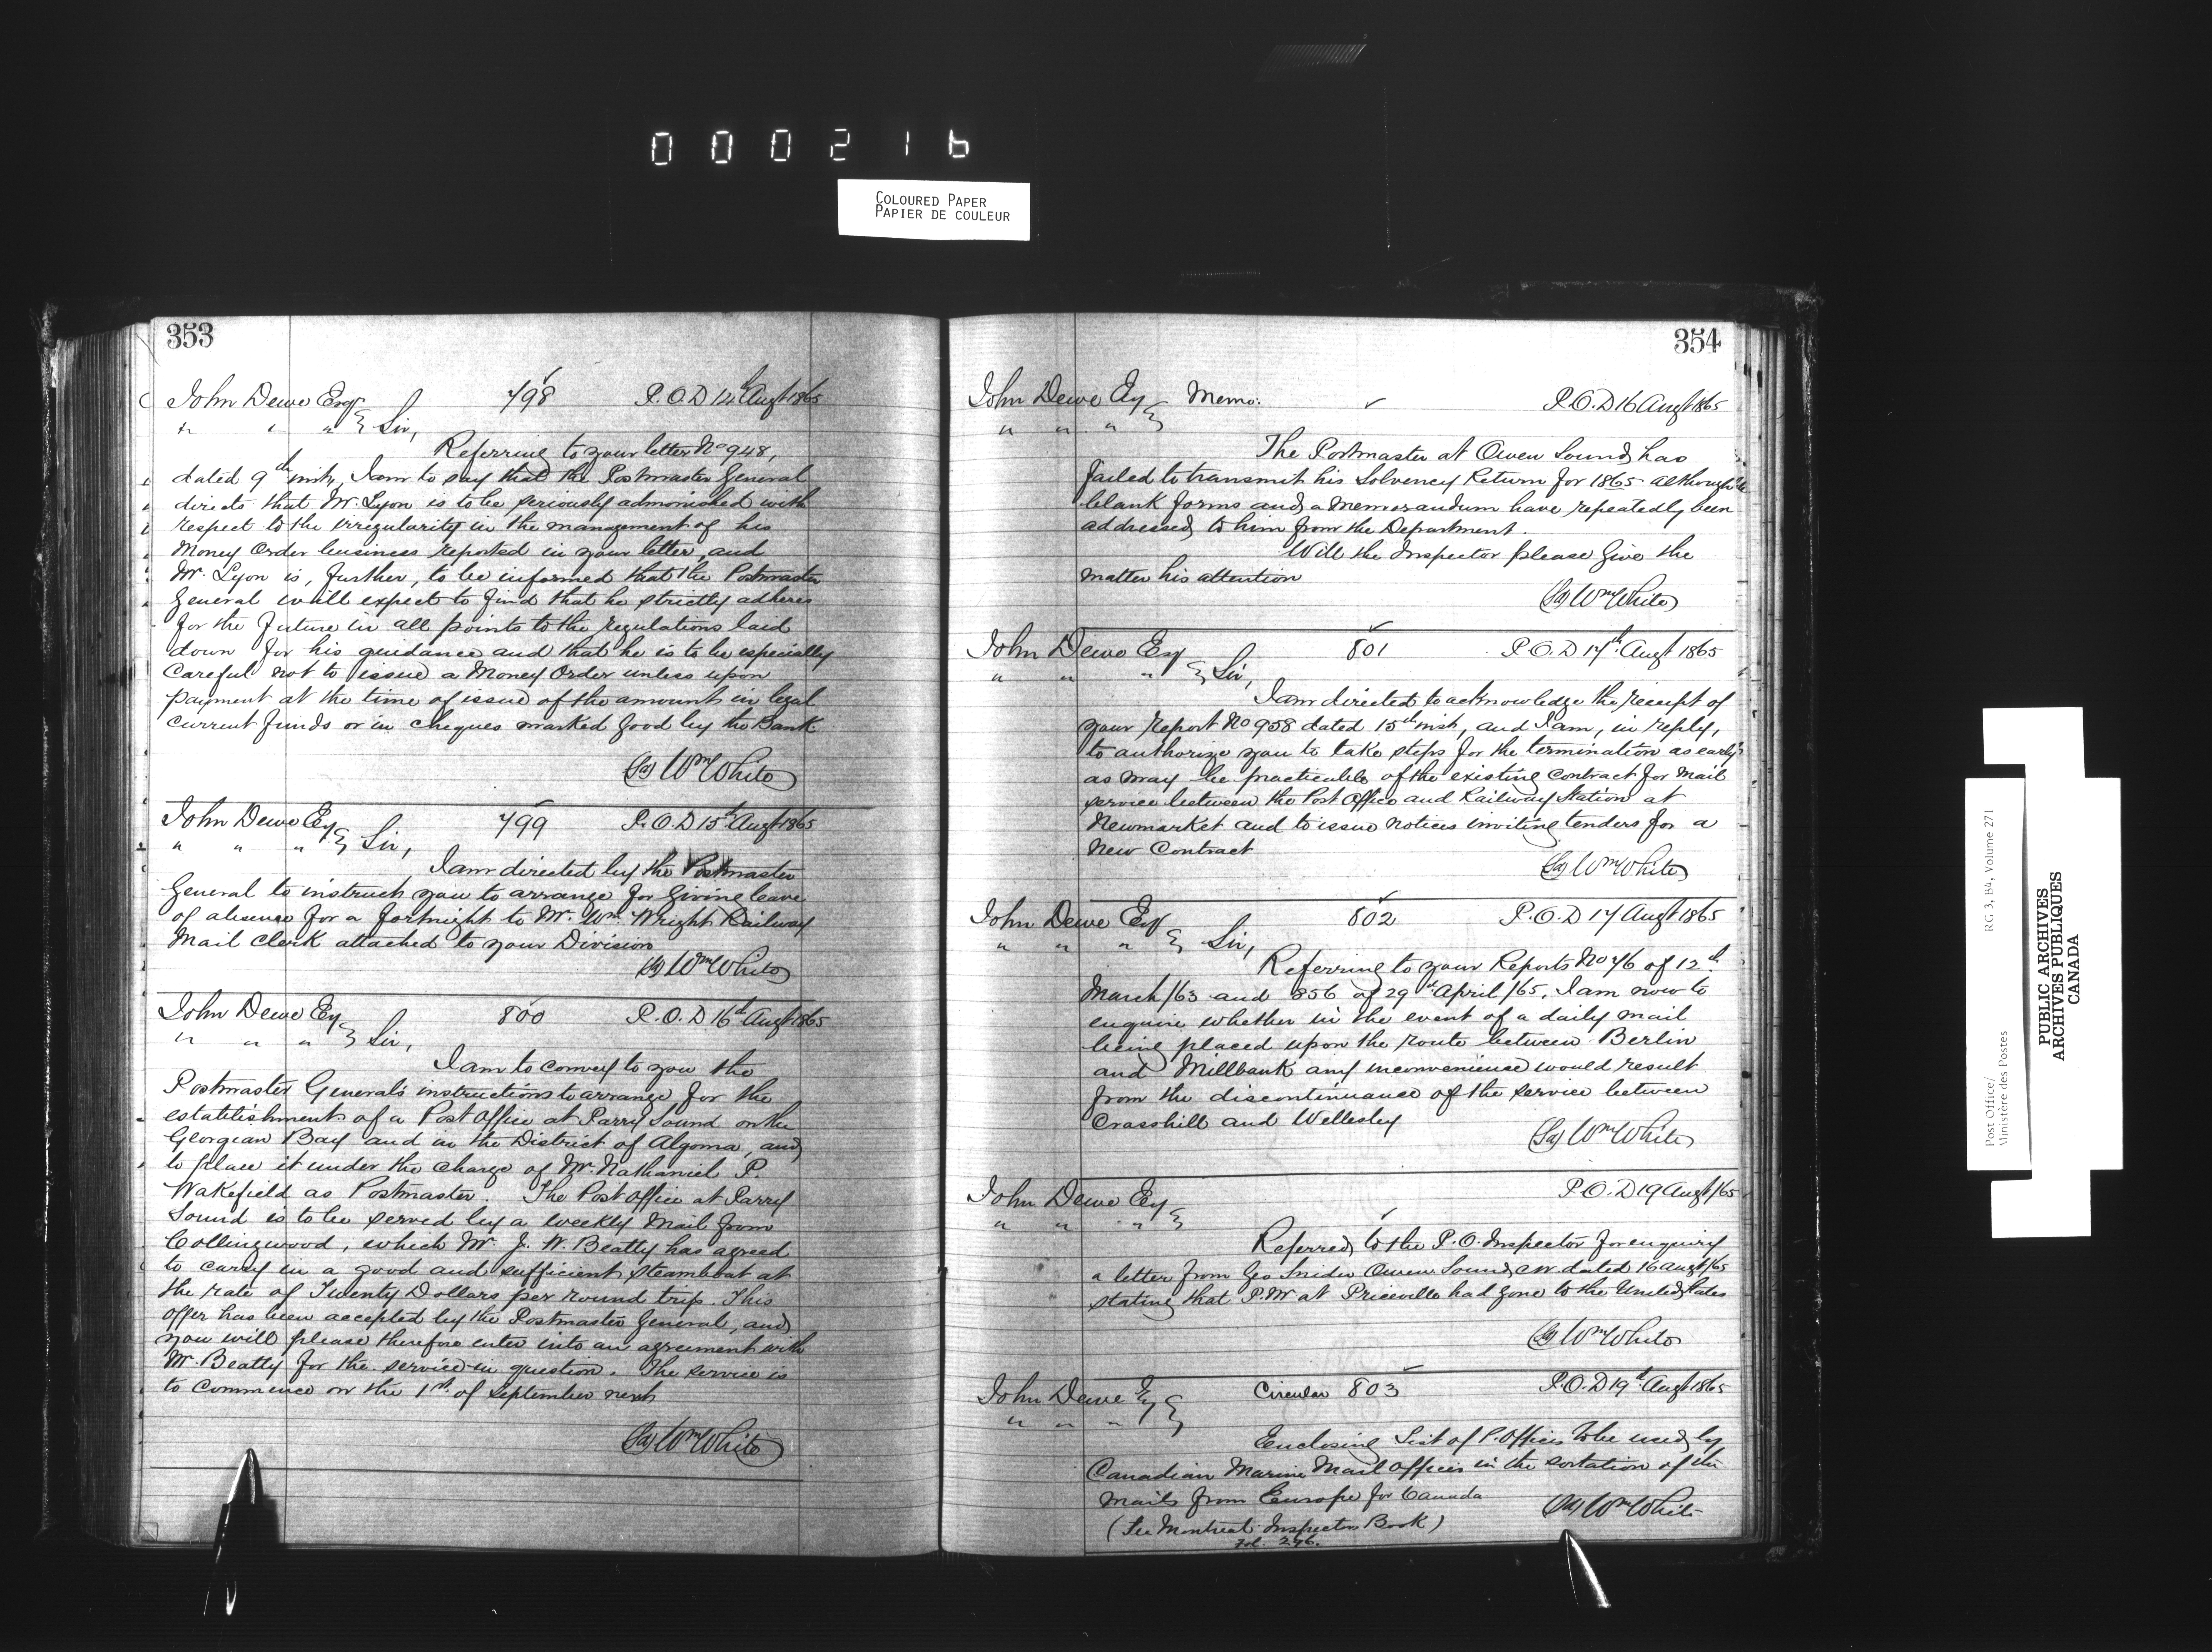 000216
COLOURED PAPER
PAPIER DE COULEUR
353
John Dewe Esqr 798 P.O.D 14th Augt 1865
" " " } Sir,
Referring to your letter No 948,
dated 9th inst, I am to say that the Postmaster General
directs that Mr. Lyon is to be seriously admonished with
respect to the irregularity in the management of his
Money Order business reported in your letter, and
Mr. Lyon is, further, to be informed that the Postmaster
General will expect to find that he strictly adheres
for the future in all points to the regulations laid
down for his guidance and that he is to be especially
careful not to issue a Money Order unless upon
payment at the time of issue of the amount in legal
current funds or in cheques marked good by the Bank
(Sg) Wm White
John Dewe Esq 799 P.O.D 15th Augt 1865
" " " } Sir,
I am directed by the Postmaster
General to instruct you to arrange for giving leave
of absence for a fortnight to Mr. Wm. Wright Railway
Mail Clerk attached to your Division
(Sg) Wm White
John Dewe Esq 800 P.O.D 16th Augt 1865
" " " } Sir,
I am to convey to you the
Postmaster General's instructions to arrange for the
establishment of a Post Office at Parry Sound on the
Georgian Bay and in the District of Algoma, and
to place it under the charge of Mr. Nathaniel P.
Wakefield as Postmaster. The Post Office at Parry
Sound is to be served by a weekly Mail from
Collingwood, which Mr. J. W. Beatty has agreed
to carry in a good and sufficient steamboat at
the rate of Twenty Dollars per round trip. This
offer has been accepted by the Postmaster General, and
you will please therefore enter into an agreement with
Mr. Beatty for the service in question. The service is
to commence on the 1st of September next
(Sg) Wm White
354
John Dewe Esq Memo: P.O.D 16 Augt 1865
" " " }
The Postmaster at Owen Sound has
failed to transmit his Solvency Return for 1865 although
blank forms and a Memorandum have repeatedly been
addressed to him from the Department.
Will the Inspector please give the
matter his attention
(Sg) Wm White
John Dewe Esq 801 P.O.D 17th Augt 1865
" " " } Sir,
I am directed to acknowledge the receipt of
your Report No 958 dated 15th inst, and I am, in reply,
to authorize you to take steps for the termination as early
as may be practicable of the existing contract for Mail
service between the Post Office and Railway Station at
Newmarket and to issue notices inviting tenders for a
New Contract
(Sg) Wm White
John Dewe Esqr 802 P.O.D 17 Augt 1865
" " " } Sir,
Referring to your Reports No 76 of 12th
March/63 and 856 of 29th April/65, I am now to
enquire whether in the event of a daily mail
being placed upon the route between Berlin
and Millbank any inconvenience would result
from the discontinuance of the service between
Crosshill and Wellesley
(Sg) Wm White
John Dewe Esq P.O.D 19 Augt/65
" " " }
Referred to the P.O. Inspector for enquiry
a letter from Geo Snider Owen Sound CW. dated 16 Augt/65
stating that P.M at Priceville had gone to the United States
(Sg) Wm White
John Dewe Esq Circular 803 P.O.D 19th Augt 1865
" " " }
Enclosing List of P. Offices to be used by
Canadian Marine Mail Officers in the sortation of the
mails from Europe for Canada
(Sg) Wm White
(See Montreal Inspectors Book)
Fol. 296.
Post Office/ RG 3, B4, Volume 271
Ministère des Postes
PUBLIC ARCHIVES
ARCHIVES PUBLIQUES
CANADA